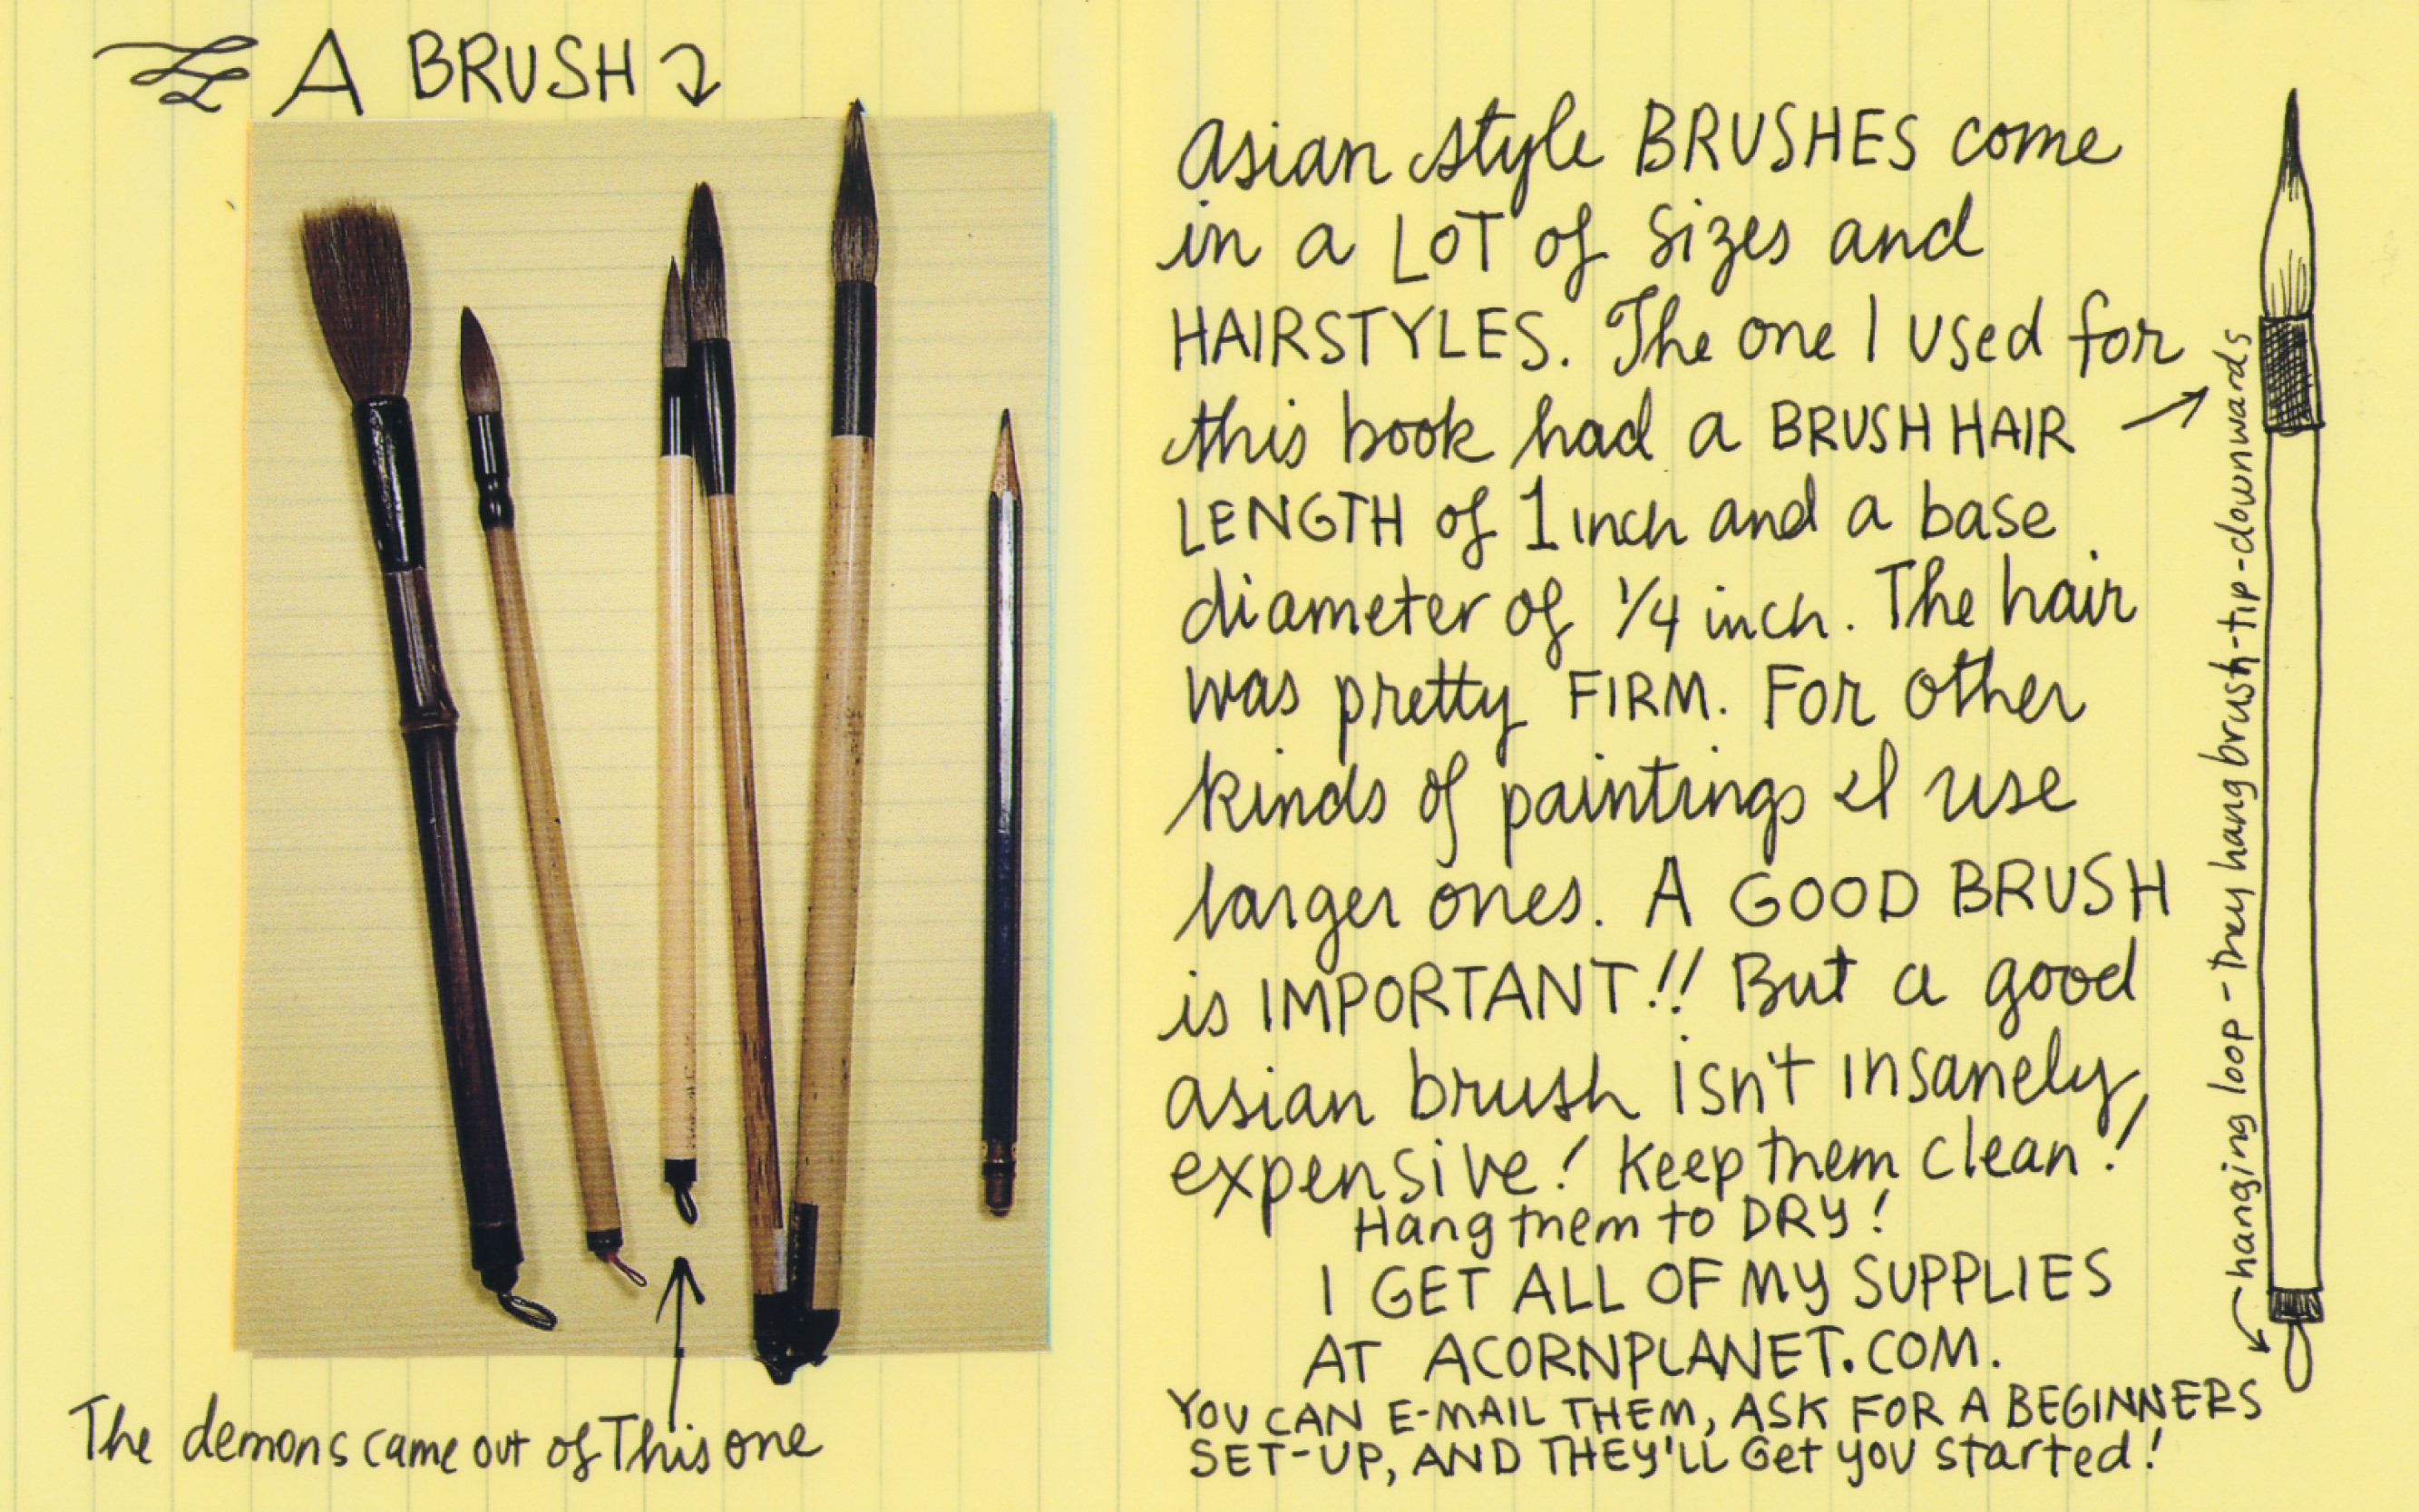 A BRUSH
The demons came out of This one
asian style BRUSHES come
in a LOT of sizes and
HAIRSTYLES. The one I used for
this book had a BRUSH HAIR
LENGTH of 1 inch and a base
diameter of 1/4 inch. The hair
was pretty FIRM. For other
kinds of paintings I use
larger ones. A GOOD BRUSH
is IMPORTANT!! But a good
asian brush isn't insanely
expensive! Keep them clean!
Hang them to DRY!
I GET ALL OF MY SUPPLIES
AT ACORNPLANET.COM.
YOU CAN E-MAIL THEM, ASK FOR A BEGINNERS
SET-UP, AND THEY'LL Get you started!
hanging loop - they hang brush-tip-downwards